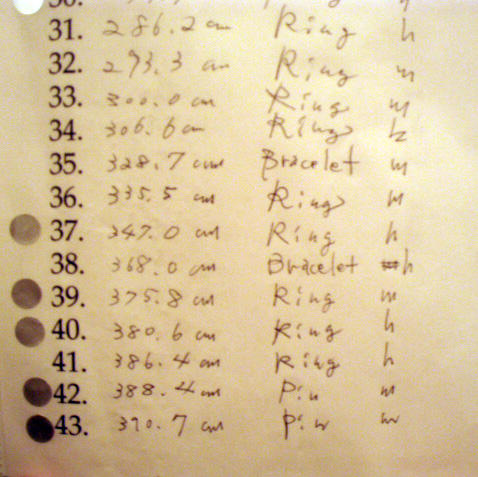 30.
31. 286.2 cm Ring h
32. 293.3 cm Ring m
33. 300.0 cm Ring m
34. 306.6 cm Ring h
35. 328.7 cm Bracelet m
36. 335.5 cm Ring m
37. 347.0 cm Ring h
38. 368.0 cm Bracelet h
39. 375.8 cm Ring m
40. 380.6 cm Ring h
41. 386.4 cm Ring h
42. 388.4 cm Pin m
43. 390.7 cm Pin m